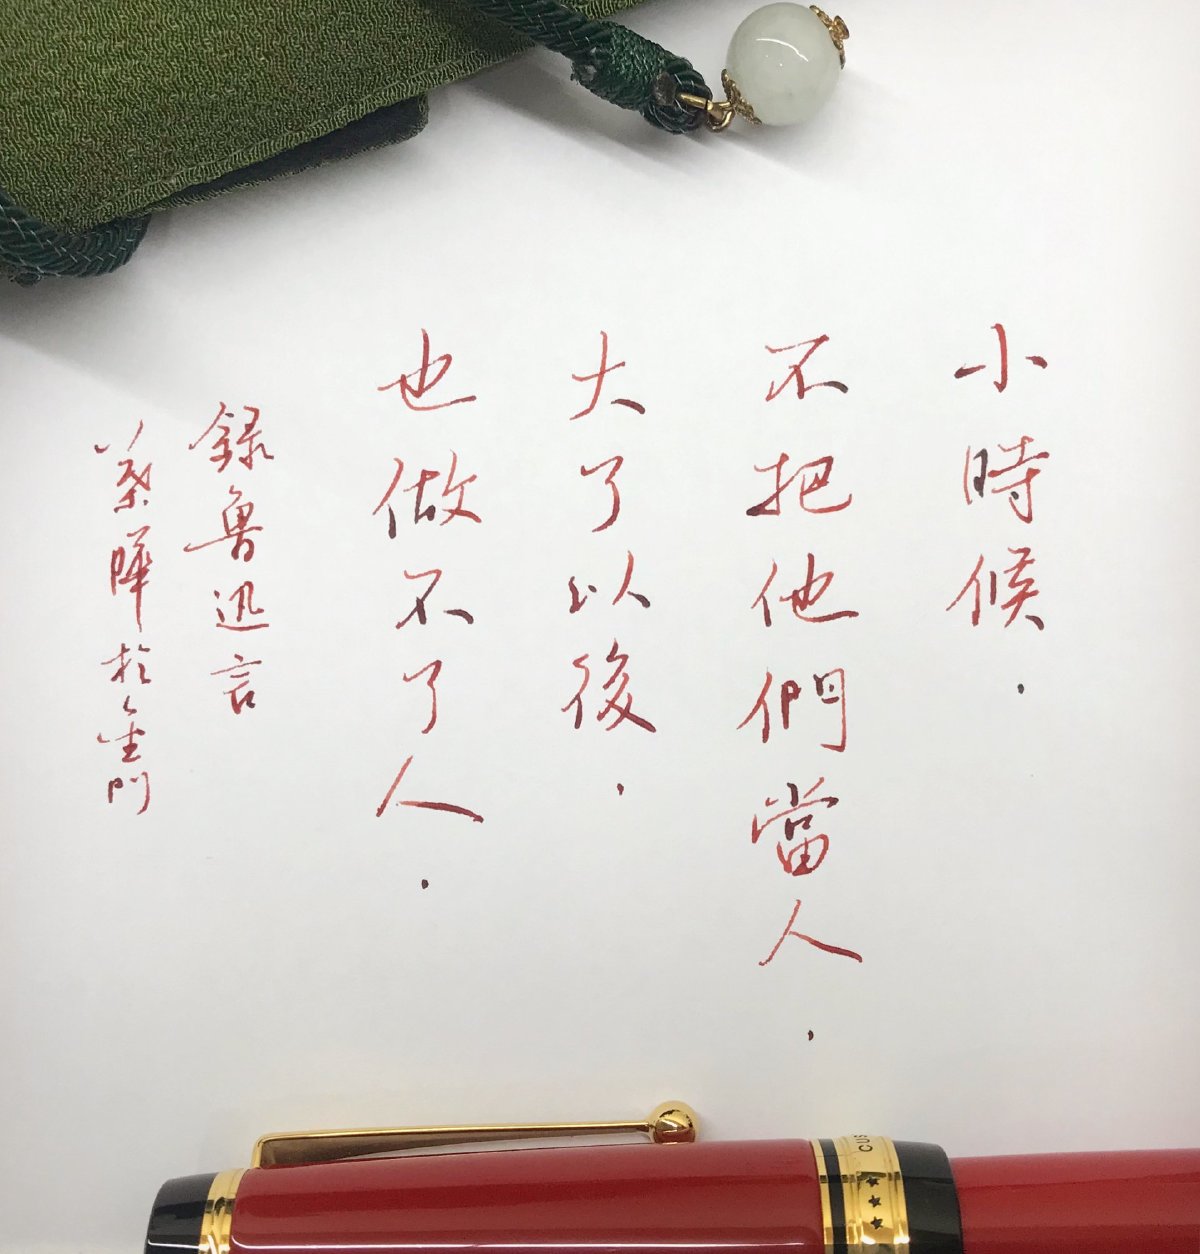 小時候．
不把他們當人．
大了以後．
也做不了人．
錄魯迅言
葉曄於金門
CUS
★★★